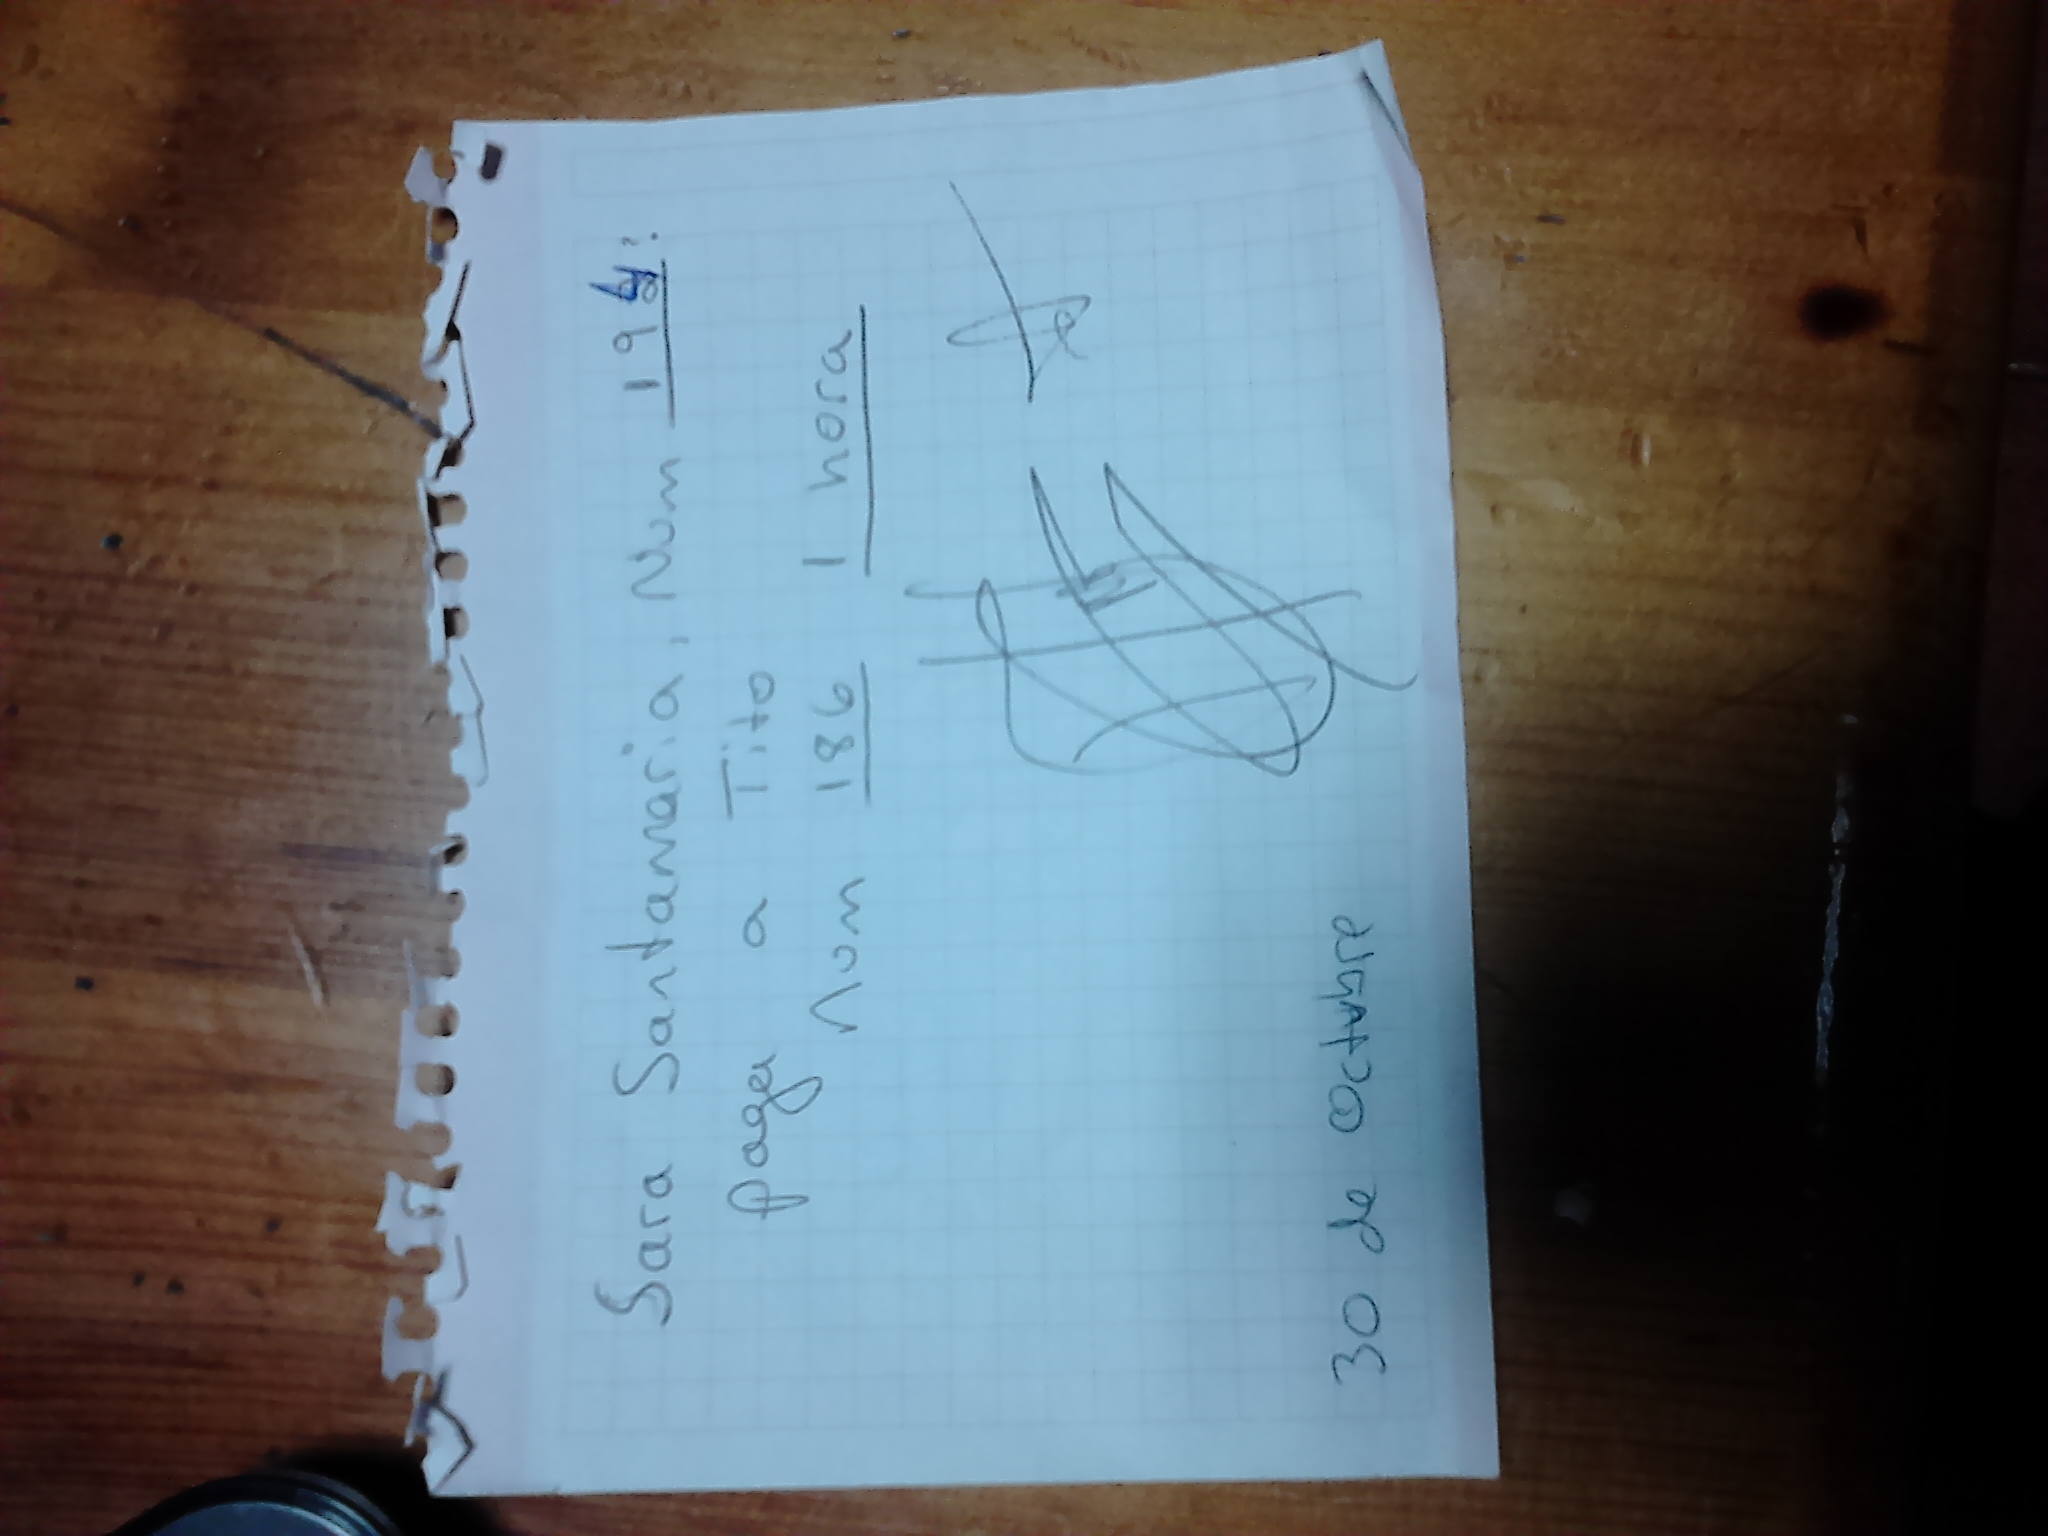 Sara Santamaria, Num
paga a Tito
Num 186 1 hora
30 de octubre